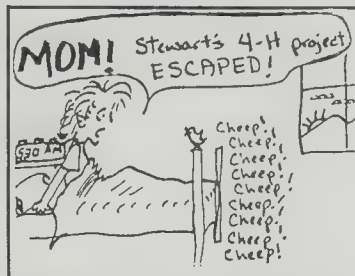 MOM! Stewart's 4-H project
ESCAPED!
5:30 AM
Cheep!
Cheep!
Cheep!
Cheep!
Cheep!
Cheep!
Cheep!
Cheep!
Cheep!